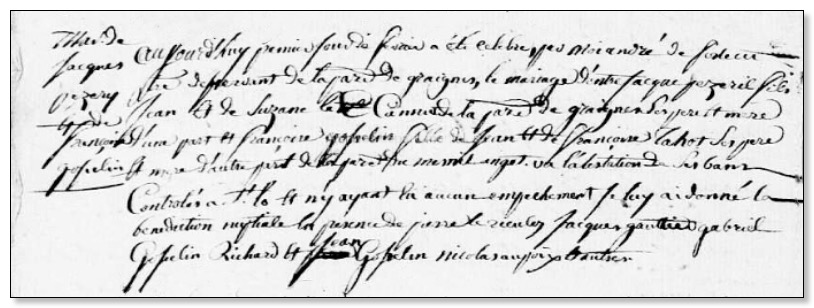 Mar. de
Jacques
Pezeril
et de
françoise
Gosselin
Aujourd'huy premier jour de fevrier a été celebré par moi andré de
ptre deservent de la par. de graignes, le mariage d'entre Jacque pezeril fils
Jean et de Suzane le Cannu de la par. de graignes ses pere et mere
d'une part et francoise gosselin fille de Jean et de francoise Lahot ses pere
et mere d'autre part de la par. du mesnil angot. vu l'atestation de ses bans
Controlés a St. lo et n'y ayant eu aucun empechement je luy ai donné la
benediction nuptiale en presence de pierre le rieules Jacques gautier gabriel
Gosselin Richard et Jean Gosselin nicolas et autres